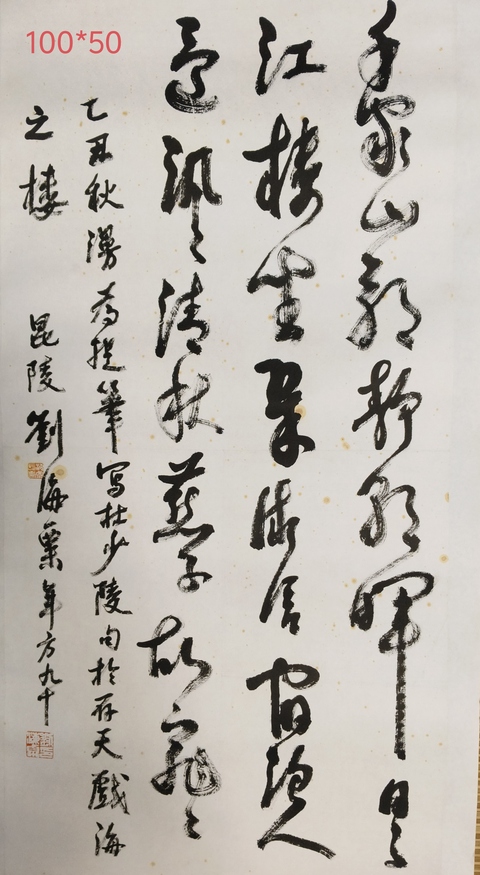 100*50
千家山郭靜朝暉日〻
江樓坐翠微信宿漁人
還汎〻清秋燕子故飛〻
乙丑秋漫為提筆寫杜少陵句於存天戲海
之樓 毘陵劉海粟年方九十